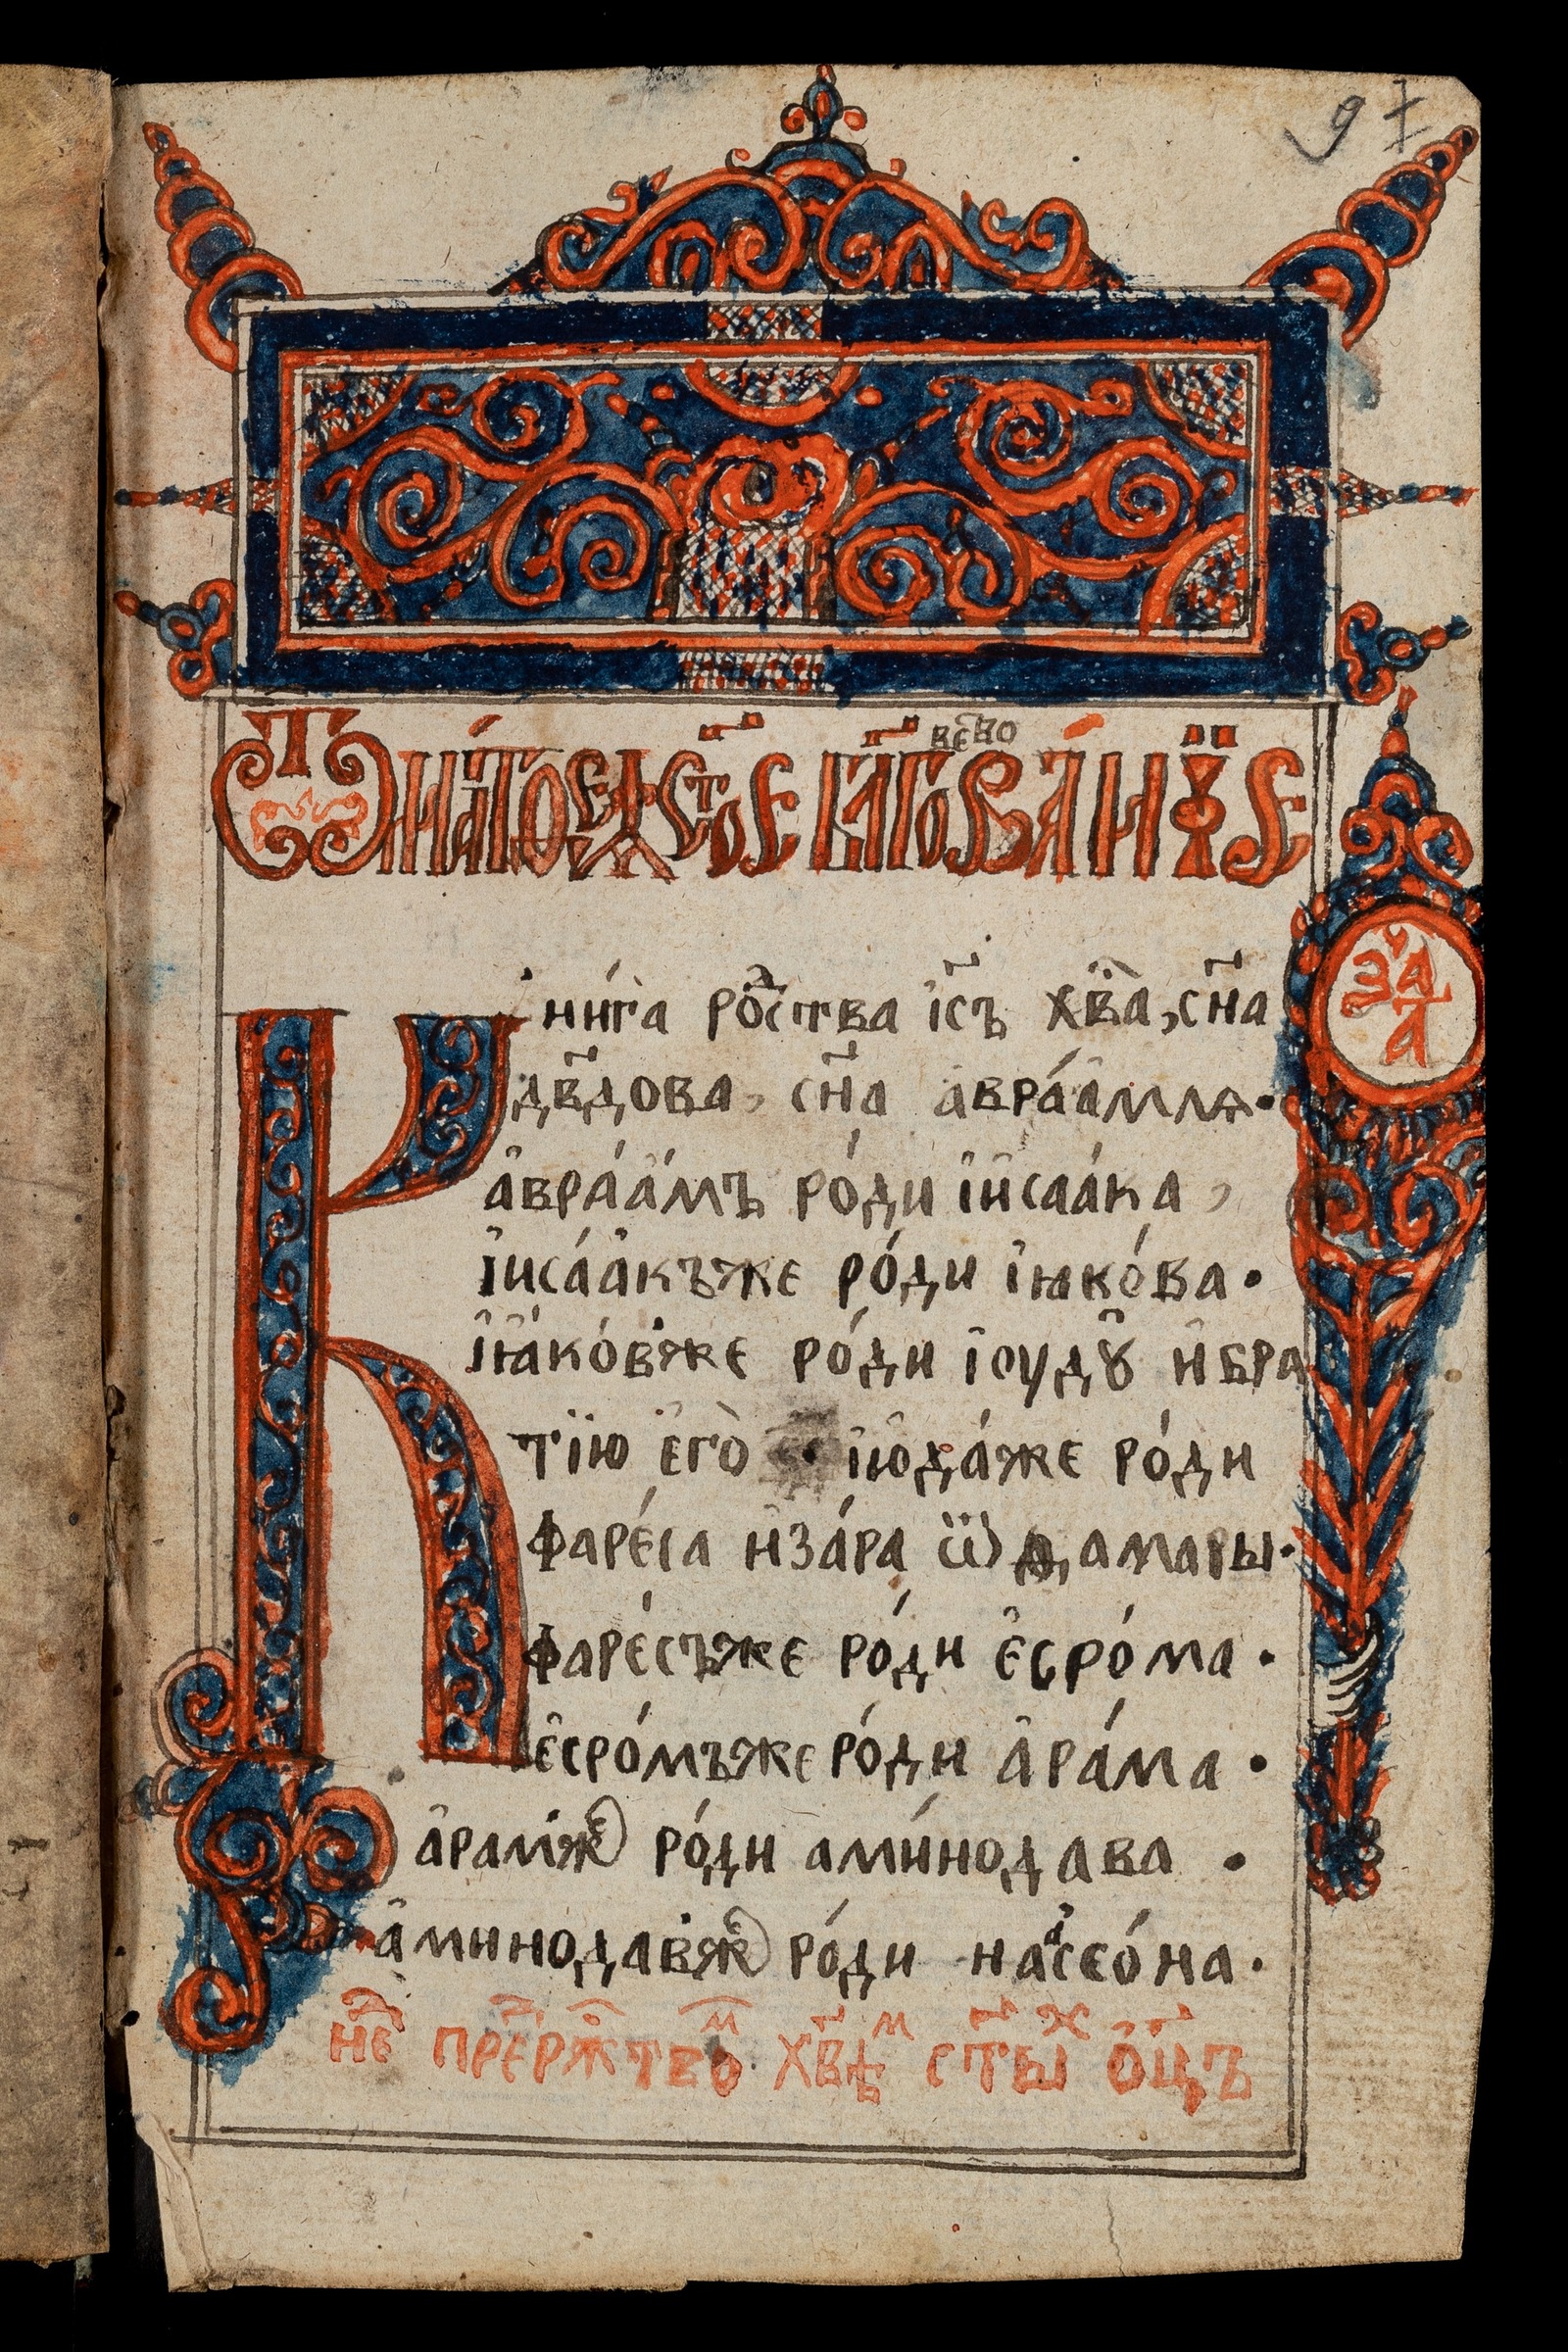 97
Ѿ маѳеѧ ст҃ое бл҃говѣствованїе
Кни́га рожⷭ҇тва і҆с҃ъ хв҃а, сн҃а
дв҃дова, сн҃а а҆враа́мля.
а҆враа́мъ ро́ди і҆и҆саа́ка,
І҆иса́а҆къже ро́ди і҆ꙗко́ва.
І҆ꙗ҆ко́вже ро́ди і҆оудꙋ̀ и҆бра
тїю є҆го̀ . і҆ю҆да́же ро́ди
фаре́са и҆за́ра ѿ дамары.
фаре́съже ро́ди є҆сро́ма.
є҆сро́мъже ро́ди а҆ра́ма.
а҆рамже ро́ди ами́нодава.
а҆минодавже ро́ди насⷭ҇о́на.
заⷱ҇ а҃
неⷣ преⷣ ржⷭ҇твоⷨ хв҃ѣⷨ ст҃ыⷯ ѻ҆ц҃ъ